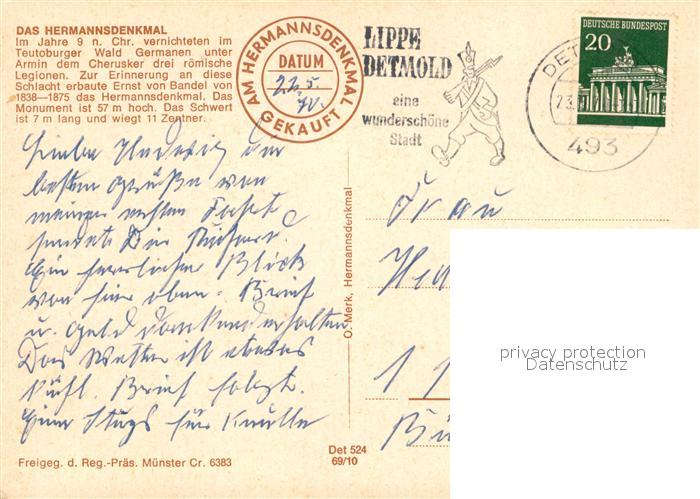 DAS HERMANNSDENKMAL
Im Jahre 9 n. Chr. vernichteten im
Teutoburger Wald Germanen unter
Armin dem Cherusker drei römische
Legionen. Zur Erinnerung an diese
Schlacht erbaute Ernst von Bandel von
1838—1875 das Hermannsdenkmal. Das
Monument ist 57 m hoch. Das Schwert
ist 7 m lang und wiegt 11 Zentner.
AM HERMANNSDENKMAL
DATUM
22.5.
70.
GEKAUFT
LIPPE
DETMOLD
eine
wunderschöne
Stadt
DEUTSCHE BUNDESPOST
20
DET
23.
493
Liebe Hedwig die
besten Grüße von
meiner ersten Fahrt
sendet Dir Richard.
Ein herrlicher Blick
von hier oben. Brief
u. Geld dankend erhalten
Das Wetter ist etwas
kühl. Brief folgt.
für
Frau
Hed
1 1
O. Merk, Hermannsdenkmal
privacy protection
Datenschutz
Freigeg. d. Reg.-Präs. Münster Cr. 6383
Det 524
69/10